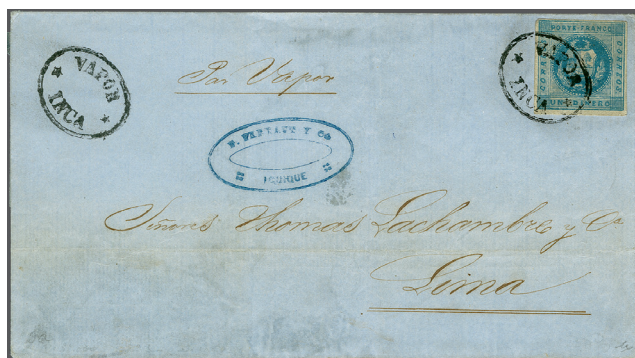 VAPOR
INCA
Por Vapor
PORTE FRANCO
CORREOS
UN DINERO
VAPOR
INCA
Y Cº
IQUIQUE
Señores Thomas Lachambre y Cª
Lima